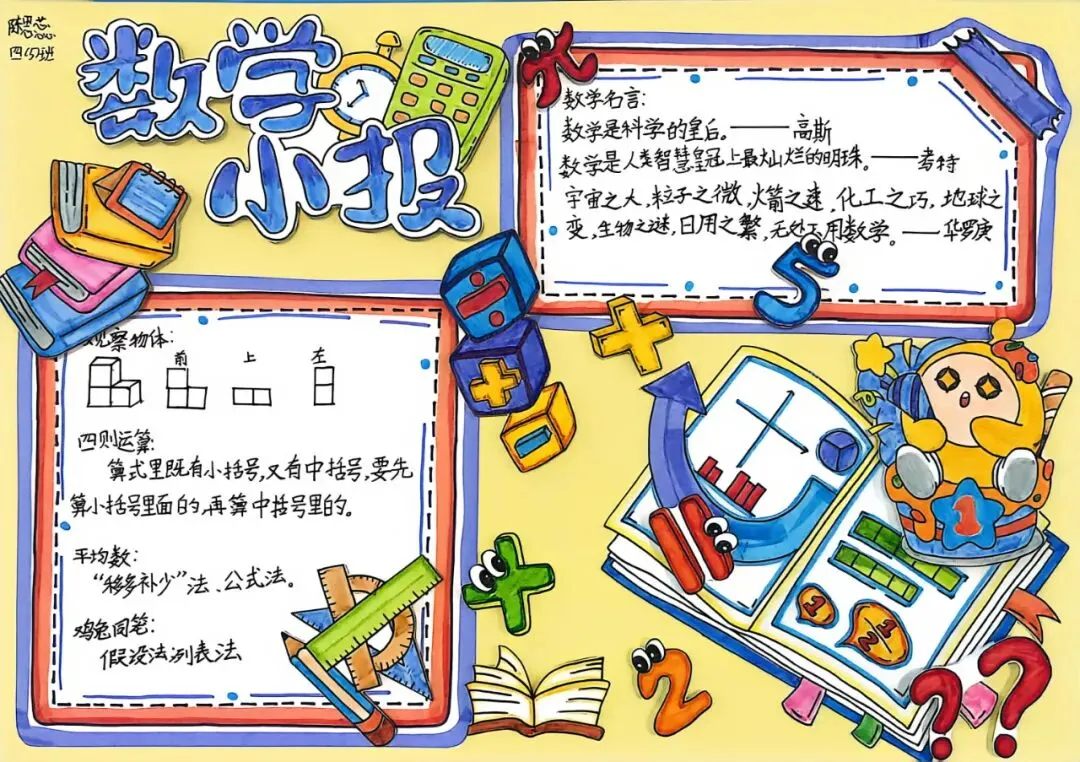 陈思芯
四(5)班
数学
小报
数学名言:
数学是科学的皇后。——高斯
数学是人类智慧皇冠上最灿烂的明珠。——考特
宇宙之大,粒子之微,火箭之速,化工之巧,地球之
变,生物之谜,日用之繁,无处不用数学。——华罗庚
5
观察物体:
前 上 左
四则运算:
算式里既有小括号,又有中括号,要先
算小括号里面的,再算中括号里的。
平均数:
“移多补少”法、公式法。
鸡兔同笼:
假设法列表法
1
1
1
2
2
? ?